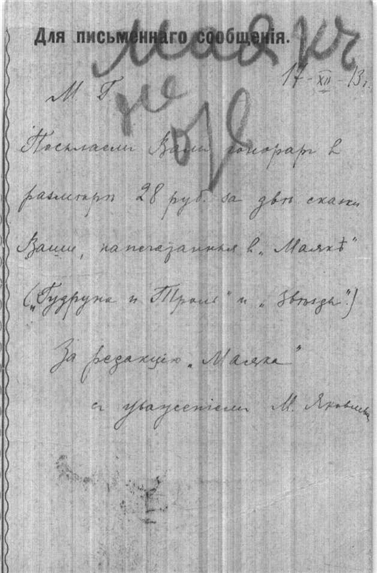 Для письменнаго сообщенія.
Маякъ
17-XII-13 г.
М Г
не
Посылаем Вам гонорар в
размѣрѣ 28 руб. за двѣ сказки
Ваши, напечатанныя в „Маякѣ"
(„Гудруна и Тролль" и „Звѣзды".)
За редакцію „Маяка"
с уваженіем М. Яковлев